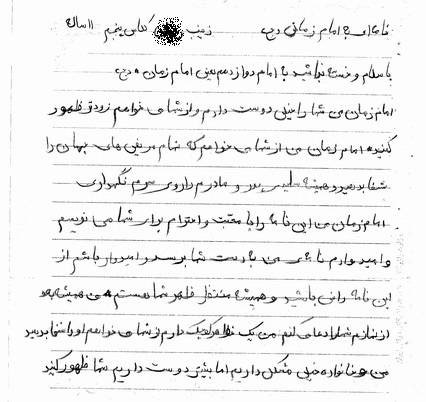 نامه ای به امام زمانی (عج) زینب کلاس پنجم ۱۱ ساله
با سلام و خسته نباشید به امام دوازدهم یعنی امام زمان (عج)
امام زمان من شما را خیلی دوست دارم و از شما می خواهم زودتر ظهور
کنید. امام زمان من از شما می خواهم که تمام مریض های جهان را
شفا بدهید و همیشه پدر و مادرم را روی سرم نگهداری
امام زمان من این نامه را با محبت و احترام برای شما می نویسم
و امیدوارم نامه ی من به دست شما برسد و امیدوار باشم از
این نامه راضی باشید و همیشه منتظر ظهور شما هستم من همیشه بعد
از نمازم شما را دعا می کنم. من یک کوچک دارم از شما می خواهم او را شفا بدهید
من و خانواده خیلی مشکل داریم اما بیشتر دوست داریم شما ظهور کنید